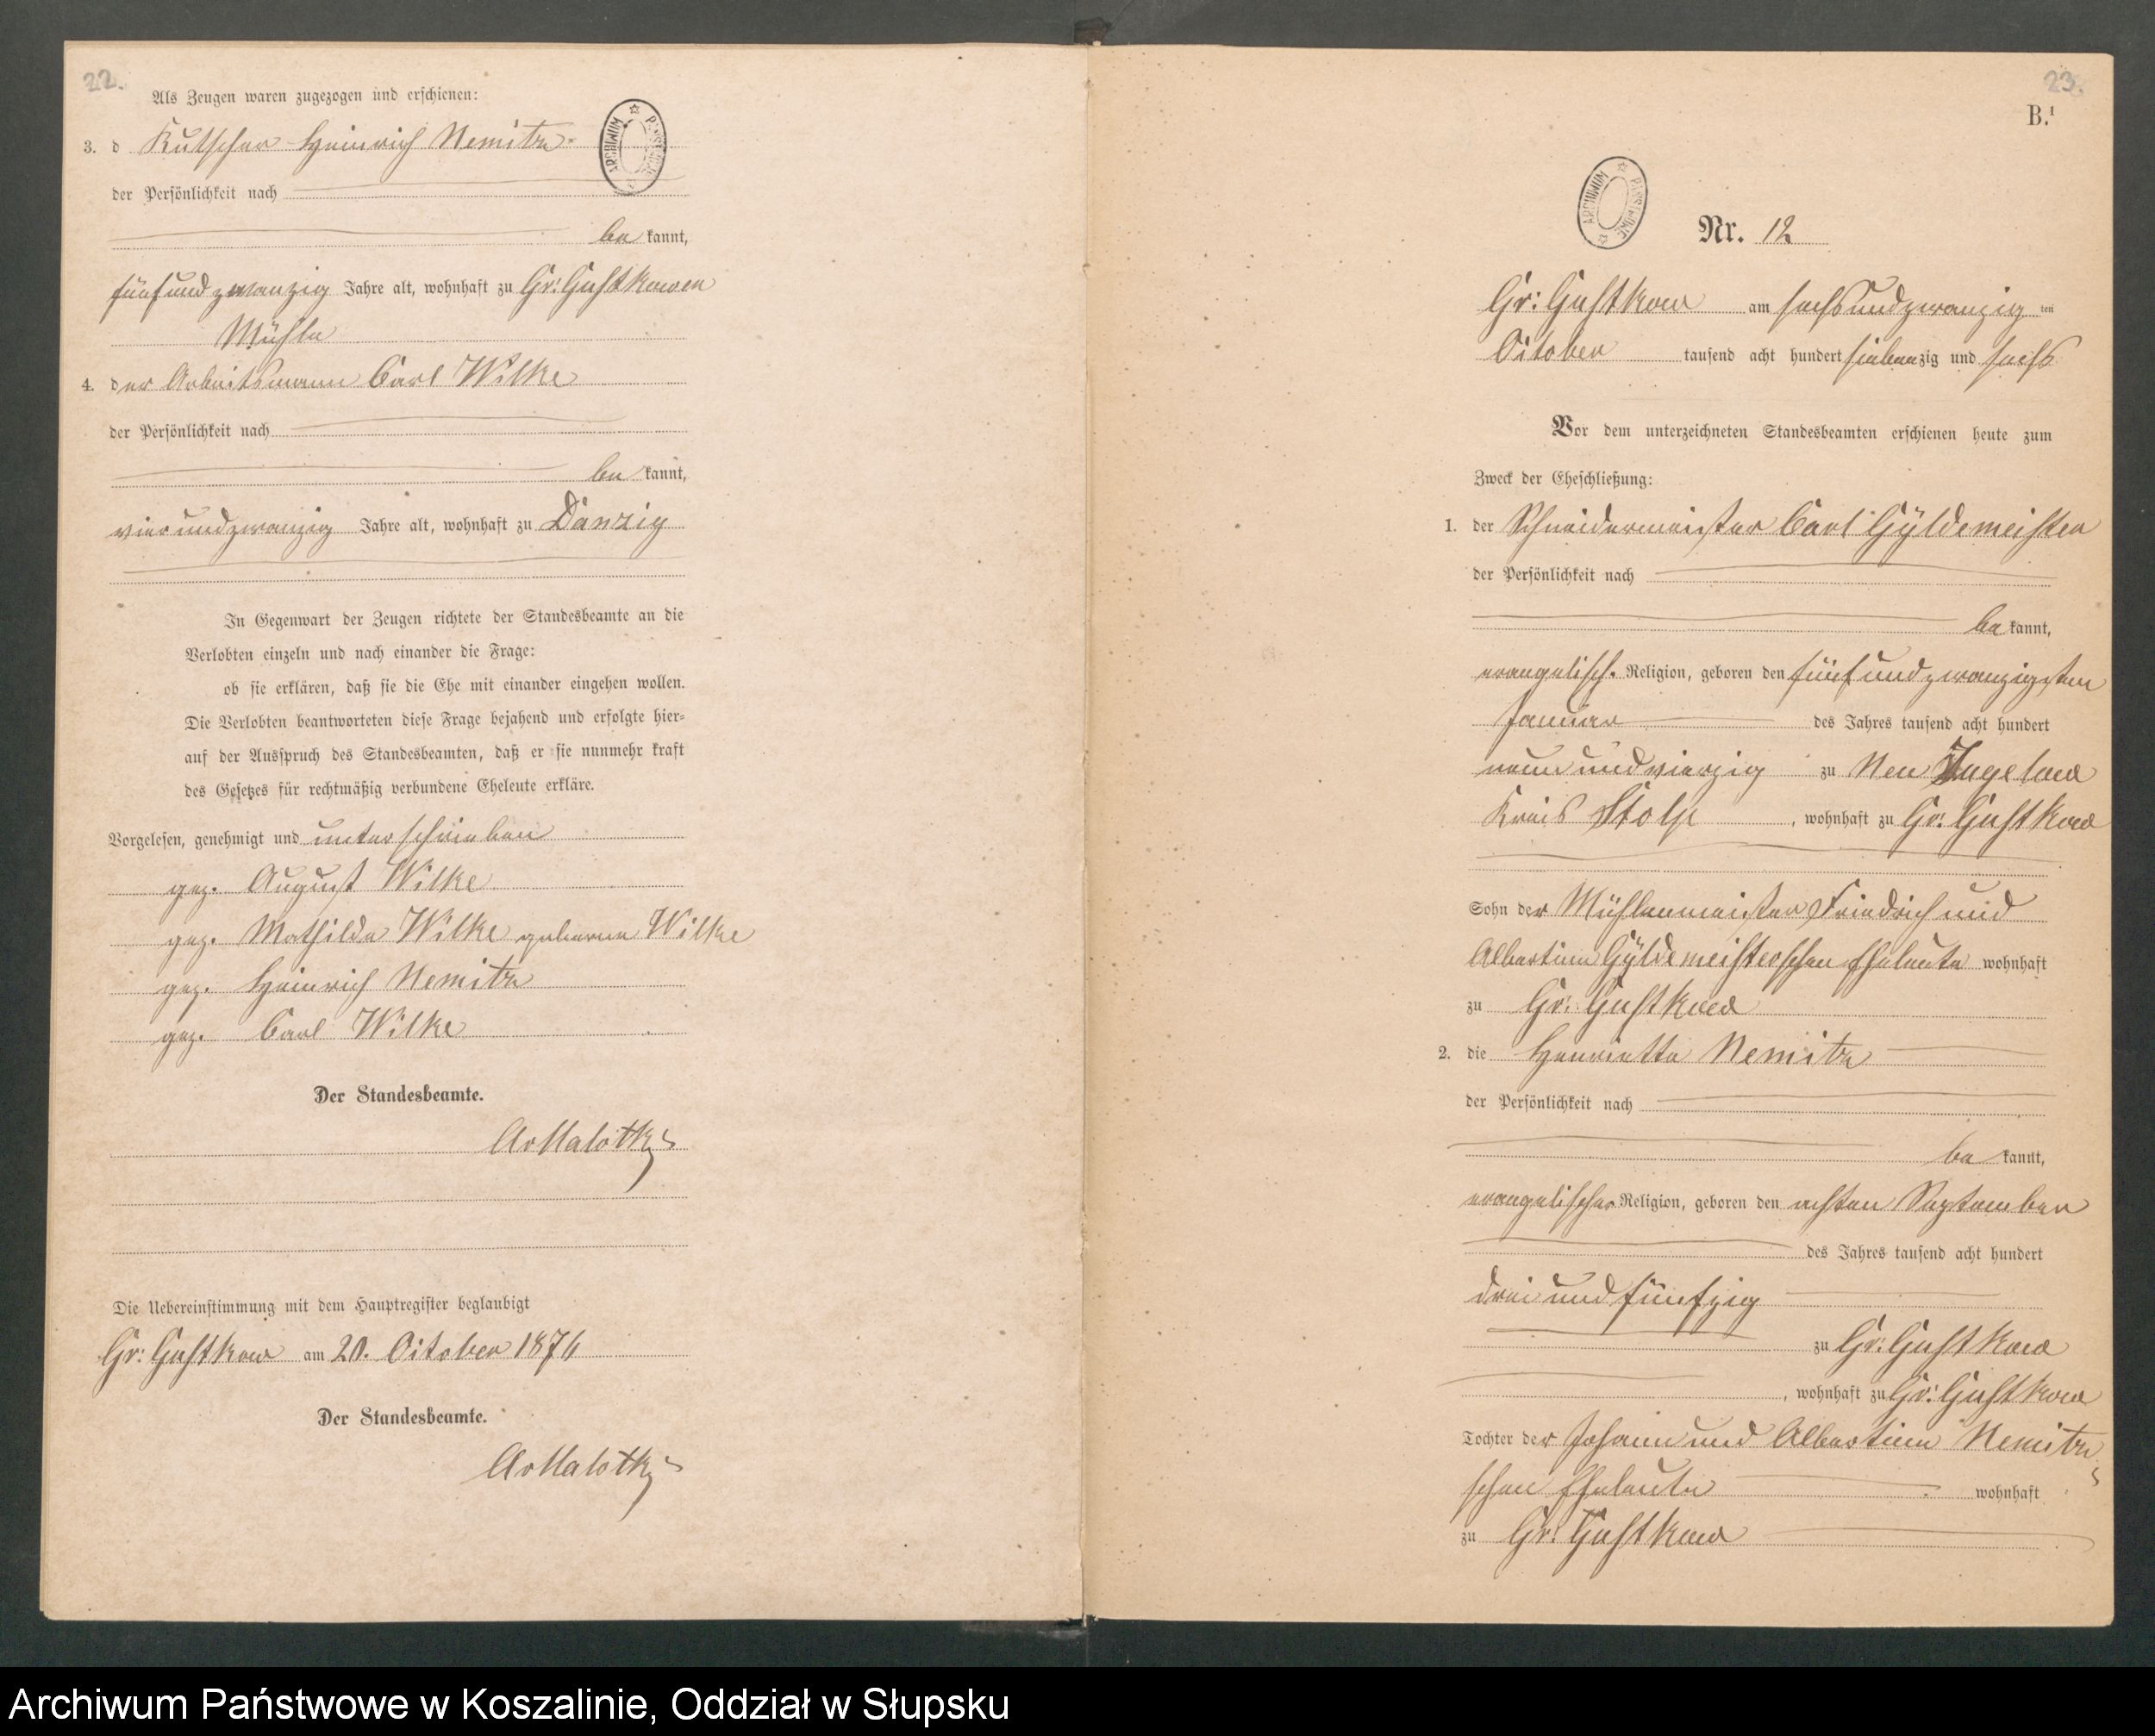 22.
Als Zeugen waren zugezogen und erschienen:
3. d Kutscher Heinrich Nemitz
der Persönlichkeit nach
be kannt,
fünf und zwanzig Jahre alt, wohnhaft zu Gr: Gustkower
Mühle
4. der Arbeitsmann Carl Wilke
der Persönlichkeit nach
be kannt,
vier und zwanzig Jahre alt, wohnhaft zu Danzig
In Gegenwart der Zeugen richtete der Standesbeamte an die
Verlobten einzeln und nach einander die Frage:
ob sie erklären, daß sie die Ehe mit einander eingehen wollen.
Die Verlobten beantworteten diese Frage bejahend und erfolgte hier=
auf der Ausspruch des Standesbeamten, daß er sie nunmehr kraft
des Gesetzes für rechtmäßig verbundene Eheleute erkläre.
Vorgelesen, genehmigt und unterschrieben
gez. August Wilke
gez. Mathilde Wilke geborene Wilke
gez. Heinrich Nemitz
gez. Carl Wilke
Der Standesbeamte.
Die Uebereinstimmung mit dem Hauptregister beglaubigt
Gr: Gustkow am 20. October 1876
Der Standesbeamte.
ARCHIWUM PAŃSTWOWE
23.
B.¹
ARCHIWUM PAŃSTWOWE
Nr. 12
Gr: Gustkow am sechs und zwanzig ten
October tausend acht hundert siebenzig und sechs
Vor dem unterzeichneten Standesbeamten erschienen heute zum
Zweck der Eheschließung:
1. der Schneidermeister Carl Gÿldemeister
der Persönlichkeit nach
be kannt,
evangelisch. Religion, geboren den fünf und zwanzigsten
Januar des Jahres tausend acht hundert
neun und vierzig zu Neu Jugelow
Kreis Stolp, wohnhaft zu Gr: Gustkow
Sohn der Mühlenmeister Friedrich und
Albertine Gÿldemeisterschen Eheleute wohnhaft
zu Gr: Gustkow
2. die Henriette Nemitz
der Persönlichkeit nach
be kannt,
evangelischer Religion, geboren den achten September
des Jahres tausend acht hundert
drei und fünfzig
zu Gr: Gustkow
, wohnhaft zu Gr: Gustkow
Tochter der Johann und Albertine Nemitz
schen Eheleute wohnhaft
zu Gr: Gustkow
Archiwum Państwowe w Koszalinie, Oddział w Słupsku